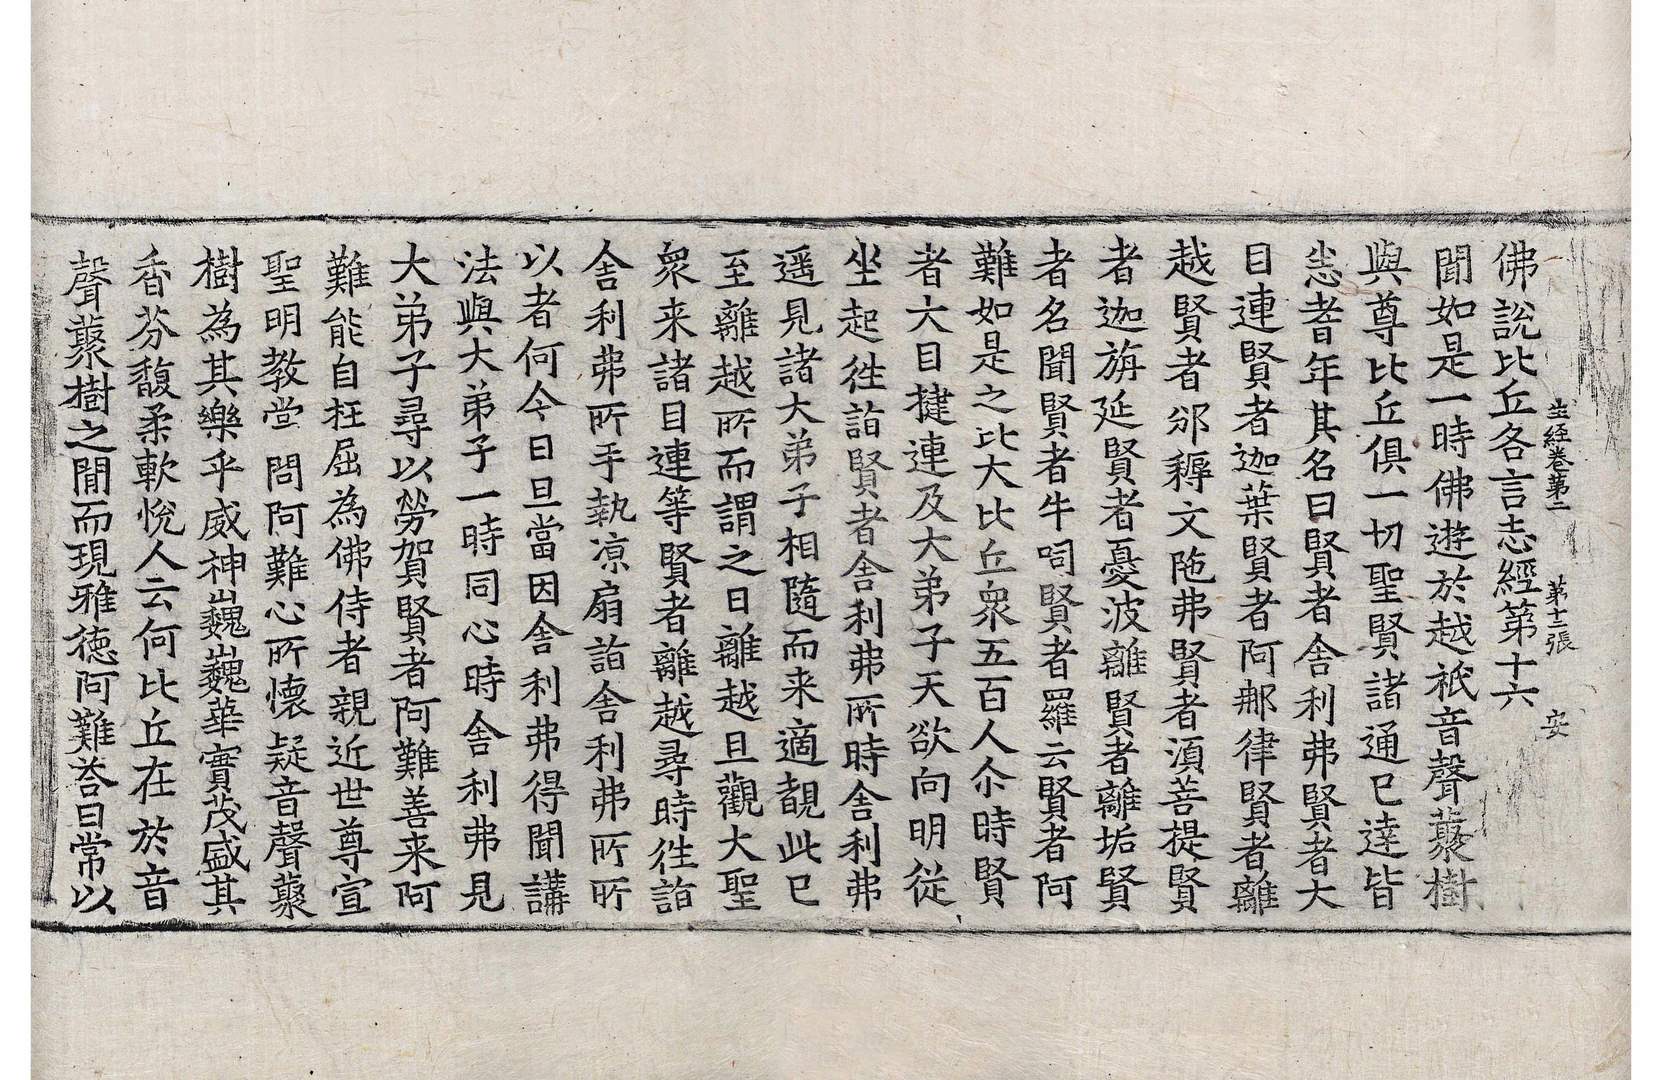 生經卷第二　第十二張　安
佛說比丘各言志經第十六
聞如是一時佛遊於越祇音聲藂樹
與尊比丘俱一切聖賢諸通已達皆
悉耆年其名曰賢者舍利弗賢者大
目連賢者迦葉賢者阿那律賢者離
越賢者邠耨文陁弗賢者湏菩提賢
者迦旃延賢者憂波離賢者離垢賢
者名聞賢者牛呞賢者羅云賢者阿
難如是之比大比丘衆五百人尒時賢
者大目揵連及大弟子天欲向明從
坐起徃詣賢者舍利弗所時舍利弗
遥見諸大弟子相隨而来適覩此已
至離越所而謂之曰離越且觀大聖
衆来諸目連等賢者離越尋時徃詣
舍利弗所手執凉扇詣舍利弗所所
以者何今日旦當因舍利弗得聞講
法與大弟子一時同心時舍利弗見
大弟子尋以勞賀賢者阿難善来阿
難能自枉屈為佛侍者親近世尊宣
聖明教堂問阿難心所懷疑音聲藂
樹為其樂乎威神巍巍華實茂盛其
香芬馥柔軟悅人云何比丘在於音
聲藂樹之閒而現雅德阿難荅曰常以